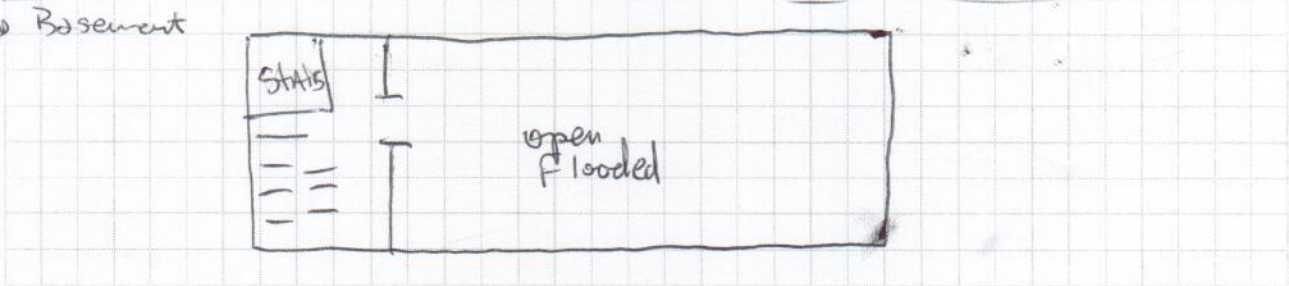 Basement
Stairs
open
Flooded